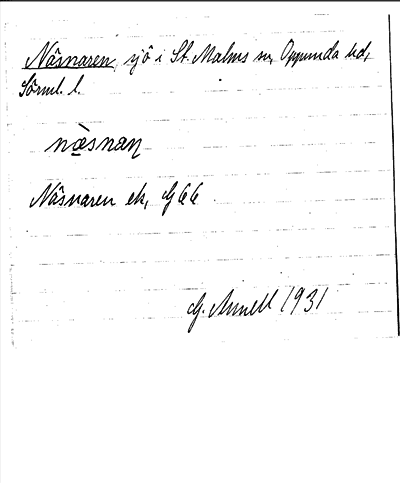 Näsnaren, sjö i St. Malms sn, Oppunda hd,
Sörml. l.
næ̀snaɳ
Näsnaren ek, G 66
G. Annell 1931